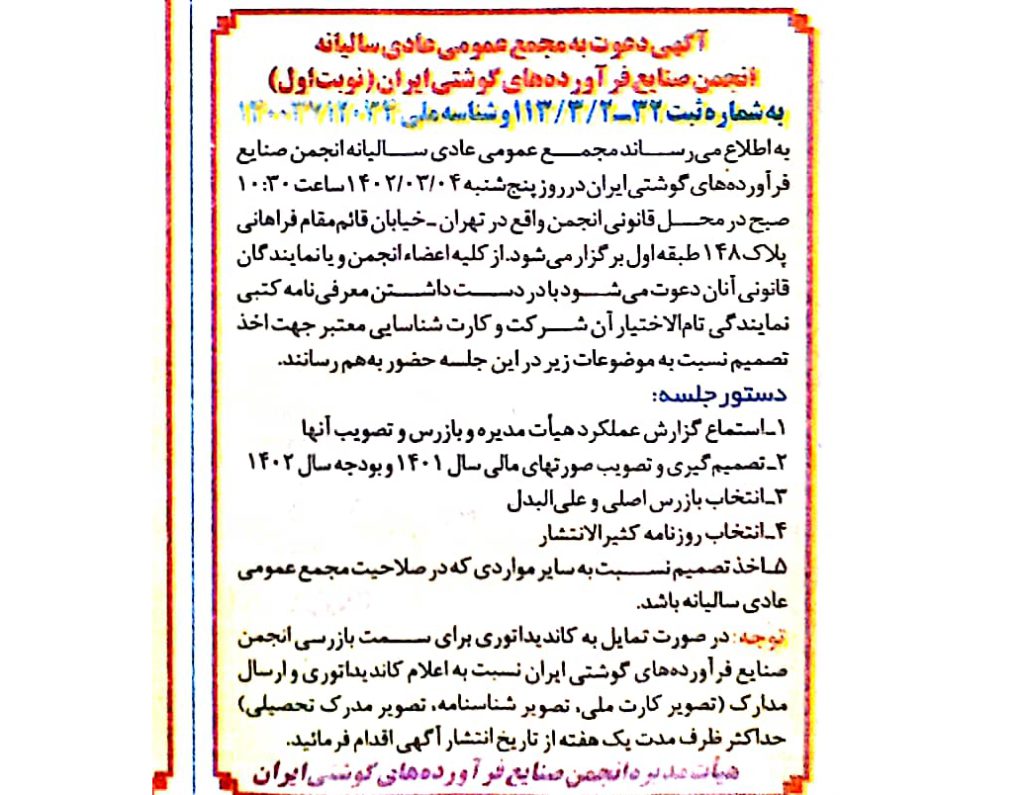 آگهی دعوت به مجمع عمومی عادی سالیانه
انجمن صنایع فرآورده‌های گوشتی ایران (نوبت اول)
به شماره ثبت ۳۲ـ۲/ ۳/ ۱۱۳ و شناسه ملی
به اطلاع می‌رساند مجمع عمومی عادی سالیانه انجمن صنایع
فرآورده‌های گوشتی ایران در روز پنج‌شنبه ۱۴۰۲/۰۳/۰۴ ساعت ۱۰:۳۰
صبح در محل قانونی انجمن واقع در تهران ـ خیابان قائم‌مقام فراهانی
پلاک ۱۴۸ طبقه اول برگزار می‌شود. از کلیه اعضاء انجمن و یا نمایندگان
قانونی آنان دعوت می‌شود با در دست داشتن معرفی‌نامه کتبی
نمایندگی تام‌الاختیار آن شرکت و کارت شناسایی معتبر جهت اخذ
تصمیم نسبت به موضوعات زیر در این جلسه حضور به‌هم رسانند.
دستور جلسه:
۱ـ استماع گزارش عملکرد هیأت مدیره و بازرس و تصویب آنها
۲ـ تصمیم گیری و تصویب صورتهای مالی سال ۱۴۰۱ و بودجه سال ۱۴۰۲
۳ـ انتخاب بازرس اصلی و علی‌البدل
۴ـ انتخاب روزنامه کثیرالانتشار
۵ـ اخذ تصمیم نسبت به سایر مواردی که در صلاحیت مجمع عمومی
عادی سالیانه باشد.
توجه: در صورت تمایل به کاندیداتوری برای سمت بازرسی انجمن
صنایع فرآورده‌های گوشتی ایران نسبت به اعلام کاندیداتوری و ارسال
مدارک (تصویر کارت ملی، تصویر شناسنامه، تصویر مدرک تحصیلی)
حداکثر ظرف مدت یک هفته از تاریخ انتشار آگهی اقدام فرمائید.
هیأت مدیره انجمن صنایع فرآورده‌های گوشتی ایران